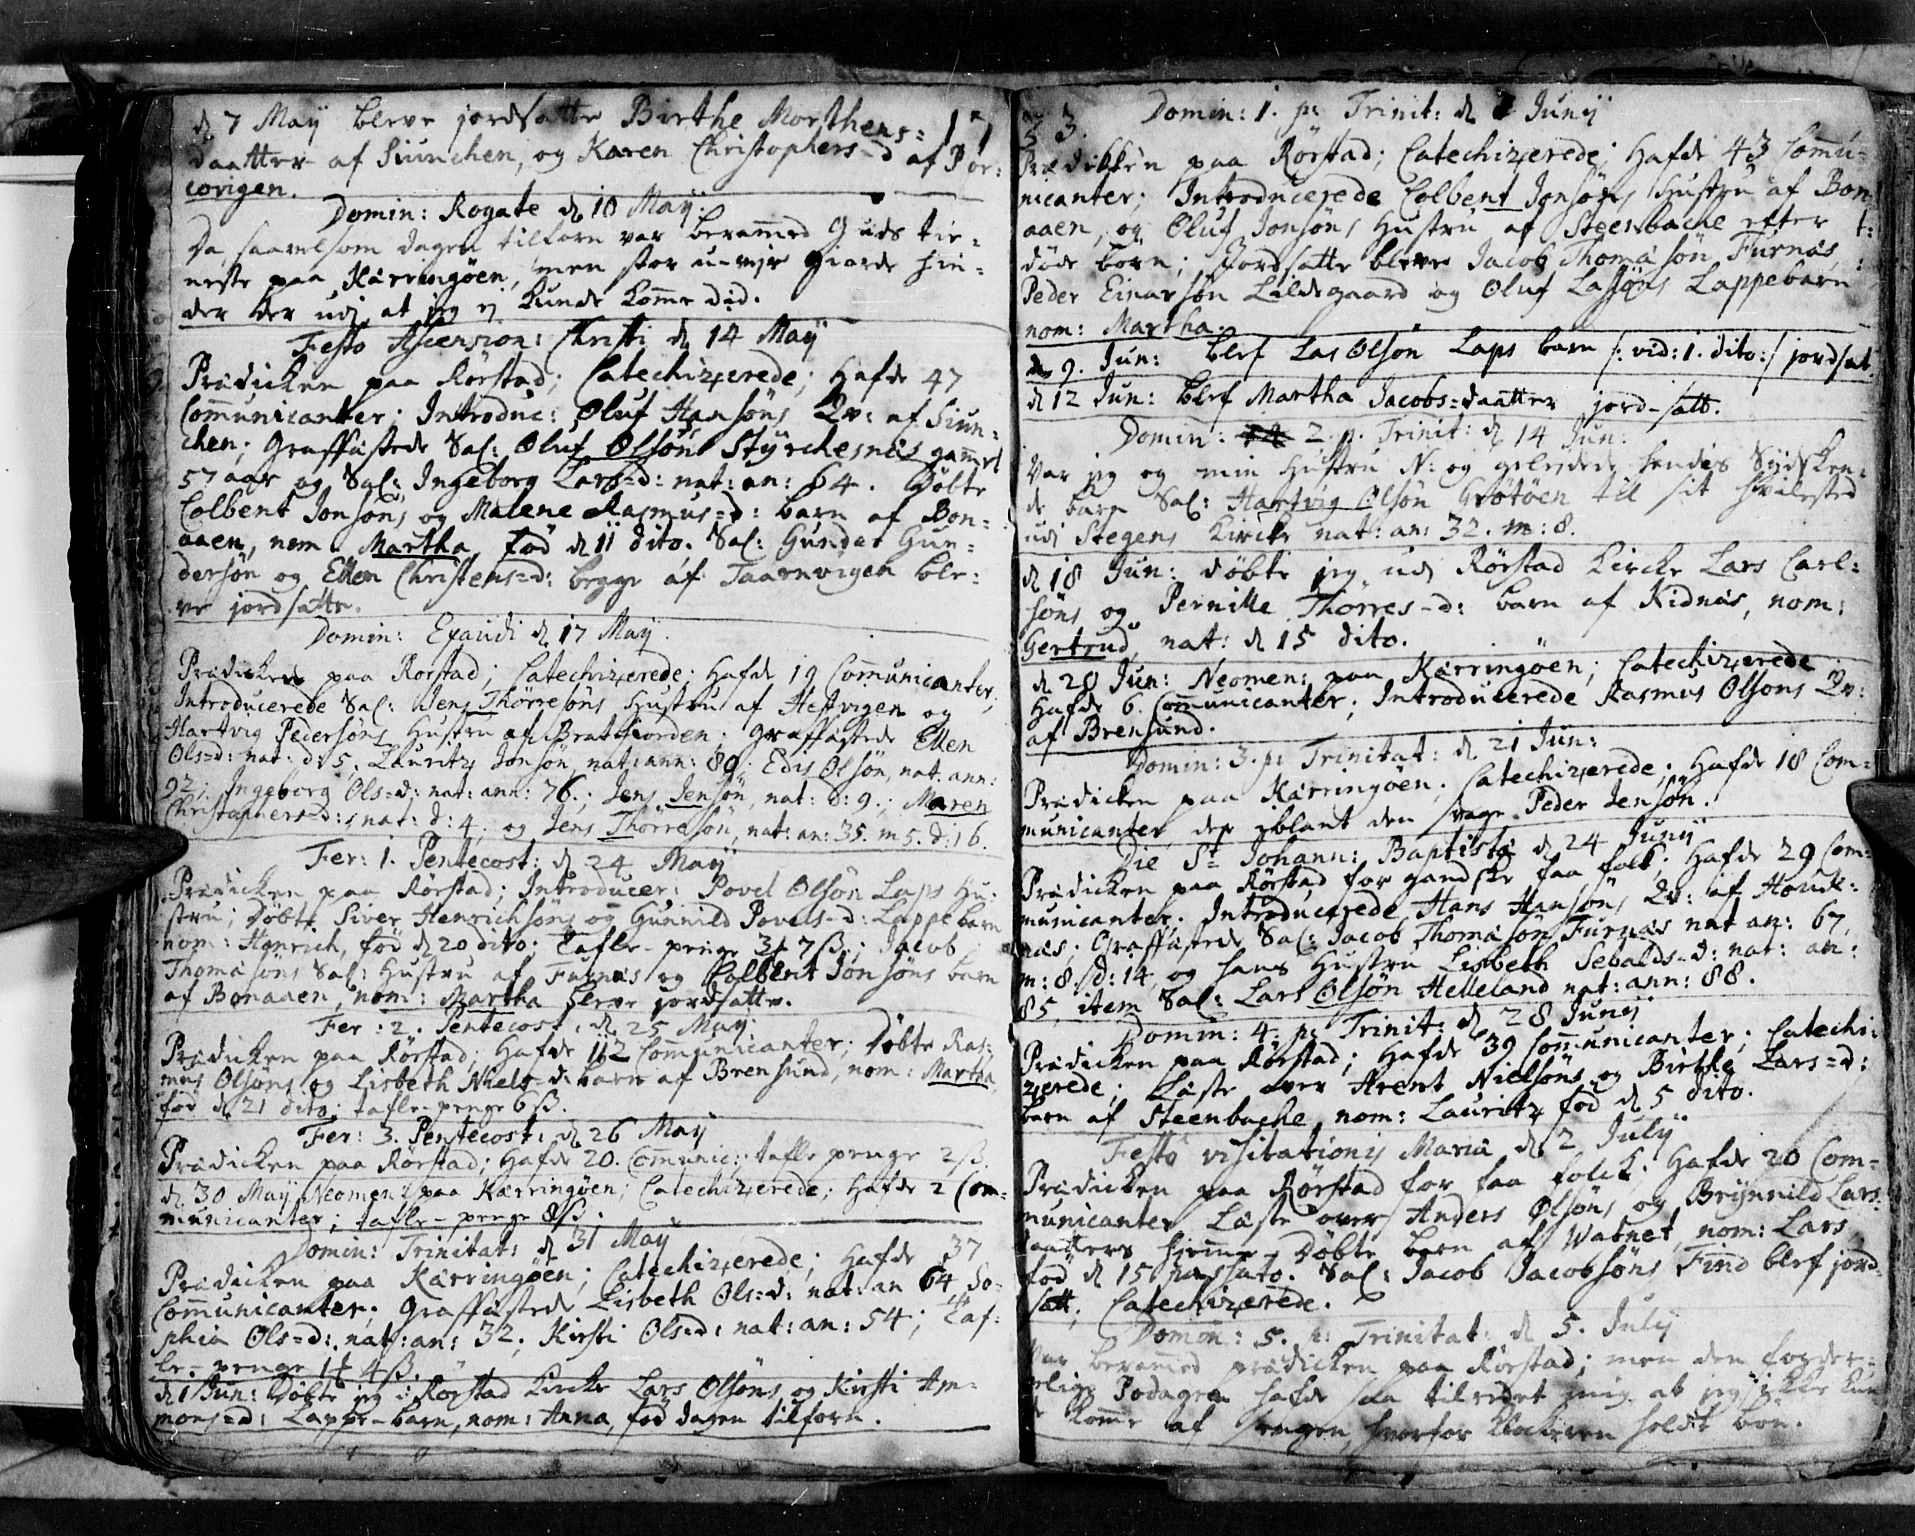 d. 7 Maÿ bleve jordsatte Birthe Morthens=
daatter af Siunchen, og Karen Christophers-d af Por:
corigen.
Domin: Rogate d. 10 Maÿ.
Da saavelsom dagen tilforn var berammed Guds tie=
neste paa Kærringøen, men stor u-vejr giorde hin=
der der udj at jeg ej kunde komme did.
Festo Ascension: Christi d. 14 Maÿ
Prædicken paa Rørstad; Catechizerede; Hafde 47
Communicanter; Introduc: Oluf Hansøns Qv: af Siun=
chen; Graffæstede Sal: Oluf Olsøn Stÿrchesnæs gammel
57 aar og Sal: Ingeborg Lars=d: nat: an: 64. Døbte
Colbent Jonsøns og Malene Rasmus=d: barn af Bon=
aaen, nom. Martha, fød d. 11 dito. Sal: Gunder Gun=
dersøn og Ellen Christens=d: begge af Taarnvigen ble=
ve jordsatte.
Domin: Exaudi d. 17 Maÿ.
Prædicken paa Rørstad; Catechizerede; Hafde 19 Communicanter;
Introducerede Sal: Jens Thørresøns Hustru af Heftvigen og
Hartvig Pedersøns Hustru af Bratfiorden; Graffæstede Ellen
Ols=d: nat: d: 5. Lauritz Jonsøn, nat: ann: 80. Edis Olsøn, nat. ann:
92; Ingeborg Ols=d: nat: ann: 76.; Jens Jensøn, nat: d: 9.; Maren
Christophers=d:, nat: d: 4. og Jens Thørresøn, nat: an: 35. m 5. d: 16.
Fer: 1. Pentecost: d. 24 Maÿ
Prædicken paa Rørstad; Introducer: Povel Olsøn Laps Hu=
stru; Døbte Siver Henrichsøns og Gunnild Povels-d: Lappebarn
nom: Henrich, fød d. 20 dito; Tafle-penge 3 7ß.; Jacob
Thomasøns Sal: Hustru af Furnæs og Colbent Jonsøns barn
af Bonaaen, nom: Martha bleve jordsatte.
Fer: 2. Pentecost: d. 25 Maÿ.
Prædicken paa Rørstad; Hafde 112 Communicanter; Døbte Ras=
mus Olsøns og Lisbeth Niels=d: barn af Brensund, nom: Martha,
fød d. 21 dito; tafle-penge 6ß.
Fer: 3. Pentecost: d. 26 Maÿ
Prædicken paa Rørstad; Hafde 20. Communic:; tafle penge 2ß.
d. 30 Maÿ Neomen: paa Kærringøen; Catechizerede; Hafde 2 Com=
municanter; tafle-penge 8ß.
Domin: Trinitat: d. 31 Maÿ
Prædicken paa Kærringøen; Catechizerede; Hafde 37
Communicanter; Graffæstede Lisbeth Ols=d: nat: an 64 So=
phia Ols=d: nat: an: 32; Kirsti Ols=d: nat: an: 54; Taf=
le-penge 4ß.
d. 1 Jun: Døbte jeg i Rørstad Kircke Lars Olsøns og Kirsti Am=
mons=d: Lappe-barn, nom: Anna, fød dagen tilforn.
Domin: 1. p: Trinit: d. 7 Junÿ
Prædicken paa Rørstad; Catechizerede; Hafde 43 Commu=
nicanter; Introducerede Colbent Jonsøns Hustru af Bon=
aaen, og Oluf Jonsøns Hustru af Steenbache efter
døde børn; Jordsatte bleve Jacob Thomasøn Furnæs,
Peder Einarsøn Lildegaard og Oluf Lassøns Lappebarn
nom: Martha.
d. 9. Jun: blef Las Olsøn Laps barn /: vid: 1. dito:/ jordsat.
d. 12 Jun: blef Martha Jacobs=daatter jord-satt.
Domin: 2. p. Trinit: d. 14 Jun:
Var jeg og min Hustru N: og geledede hendis Sÿdsken=
de barn Sal: Hartvig Olsøn Grøtøen til sit hvilested
udi Stegens Kircke nat: an: 32. m: 8.
d. 18 Jun: døbte jeg udj Rørstad Kircke Lars Carl=
søns og Pernille Thørres-d: barn af Kidnæs, nom:
Gertrud, nat: d. 15 dito.
d. 20 Jun: Neomen: paa Kærringøen; Catechizerede
Hafde 6. Communicanter; Introducerede Rasmus Olsøns Qv:
af Brensund.
Domin: 3. p: Trinitat: d. 21 Jun:
Prædicken paa Kærringøen; Catechizerede; Hafde 18 Com=
municanter, der iblant den svage Peder Jensøn.
Die St Johann: Baptistæ d. 24 Junÿ
Prædicken paa Rørstad for gandske faa folk; Hafde 29 Com=
municanter. Introducerede Hans Hansøns Qv: af Houk=
næs; Graffæstede Sal: Jacob Thomasøn Furnæs nat an: 67,
m: 8. d: 14, og hans Hustru Lisbeth Sebalds-d: nat: an:
85, item Sal: Lars Olsøn Helleland nat: ann: 88.
Domin: 4. p: Trinit: d. 28 Junÿ
Prædicken paa Rørstad; Hafde 39 Communicanter; Catechi=
zerede; Læste over Arent Nielsøns og Birthe Lars=d:
barn af Steenbache, nom: Lauritz fød d. 5 dito.
Festo visitationis Mariæ d. 2 Julÿ
Prædicken paa Rørstad for faa folck; Hafde 20 Com=
municanter. Læste over Anders Olsøns og Brÿnnild Lars=
daatters hjemme-Døbte barn af Watnet, nom: Lars,
fød d. 15 passato. Sal: Jacob Jacobsøns Find blef jord=
satt. Catechizerede.
Domin: 5. p: Trinitat: d. 5. Julÿ
Var berammed prædicken paa Rørstad; men den forder=
velige Podagra hafde saa tilredet mig, at jeg ikke kun
de komme af sengen, hvorfor Klockeren holdt bøn.